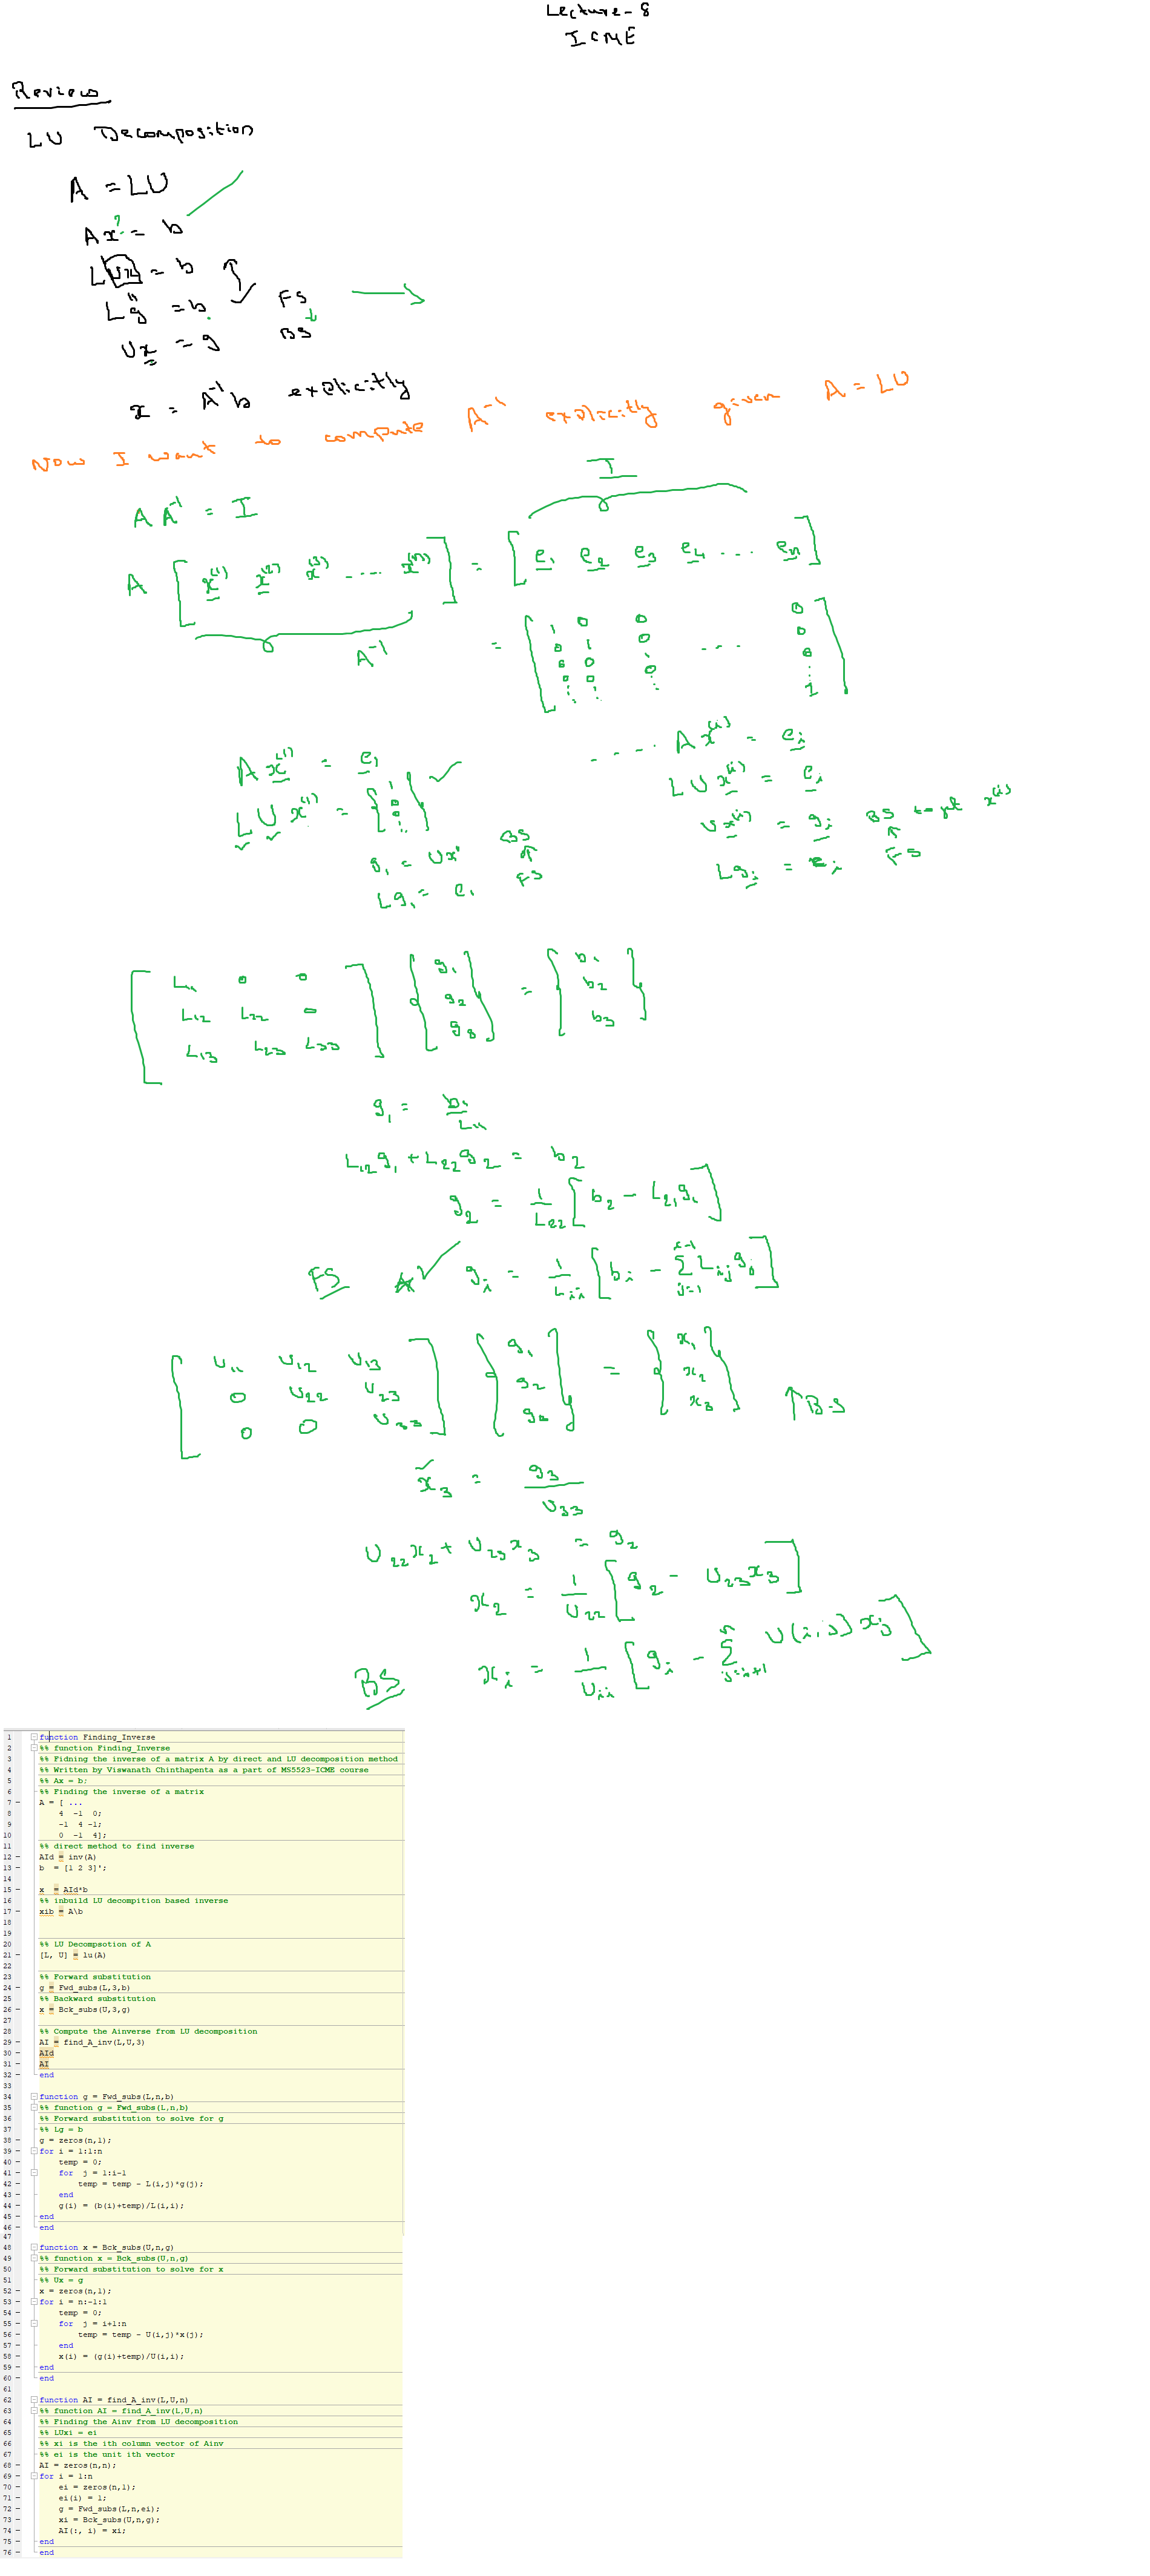 Lecture-8
ICME
Review
LU Decomposition
A = LU
Ax? = b
LUx = b
Lg = b FS
Ux = g BS
x = A⁻¹b explicitly
Now I want to compute A⁻¹ explicitly given A = LU
I
A A⁻¹ = I
A [ x⁽¹⁾ x⁽²⁾ x⁽³⁾ .... x⁽ⁿ⁾ ] = [ e₁ e₂ e₃ e₄ .... eₙ ]
A⁻¹
= [ 1 0 0 0
0 1 0 .... 0
0 0 1 0
0 0 0 :
: : : 1 ]
A x⁽¹⁾ = e₁ .... A x⁽ⁱ⁾ = eᵢ
L U x⁽¹⁾ = { 1 0 0 : } L U x⁽ⁱ⁾ = eᵢ
g₁ = Ux¹ BS U x⁽ⁱ⁾ = gᵢ BS to get x⁽ⁱ⁾
Lg₁ = e₁ FS Lgᵢ = eᵢ FS
[ L₁₁ 0 0 ] { g₁ } = { b₁ }
L₁₂ L₂₂ 0 g₂ b₂
L₁₃ L₂₃ L₃₃ g₃ b₃
g₁ = b₁ / L₁₁
L₁₂g₁ + L₂₂g₂ = b₂
g₂ = 1/L₂₂ [ b₂ - L₂₁g₁ ]
FS gᵢ = 1/Lᵢᵢ [ bᵢ - Σ_{j=1}^{i-1} Lᵢⱼ gⱼ ]
[ U₁₁ U₁₂ U₁₃ ] { g₁ } = { x₁ }
0 U₂₂ U₂₃ g₂ x₂
0 0 U₃₃ g₃ x₃ ↑ BS
x₃ = g₃ / U₃₃
U₂₂x₂ + U₂₃x₃ = g₂
x₂ = 1/U₂₂ [ g₂ - U₂₃x₃ ]
BS xᵢ = 1/Uᵢᵢ [ gᵢ - Σ_{j=i+1}^{n} U(i,j) xⱼ ]
1 function Finding_Inverse
2 %% function Finding_Inverse
3 %% Fidning the inverse of a matrix A by direct and LU decomposition method
4 %% Written by Viswanath Chinthapenta as a part of MS5523-ICME course
5 %% Ax = b;
6 %% Finding the inverse of a matrix
7 A = [ ...
8 4 -1 0;
9 -1 4 -1;
10 0 -1 4];
11 %% direct method to find inverse
12 AId = inv(A)
13 b = [1 2 3]';
14
15 x = AId*b
16 %% inbuild LU decompition based inverse
17 xib = A\b
18
19
20 %% LU Decompsotion of A
21 [L, U] = lu(A)
22
23 %% Forward substitution
24 g = Fwd_subs(L,3,b)
25 %% Backward substitution
26 x = Bck_subs(U,3,g)
27
28 %% Compute the Ainverse from LU decomposition
29 AI = find_A_inv(L,U,3)
30 AId
31 AI
32 end
33
34 function g = Fwd_subs(L,n,b)
35 %% function g = Fwd_subs(L,n,b)
36 %% Forward substitution to solve for g
37 %% Lg = b
38 g = zeros(n,1);
39 for i = 1:1:n
40 temp = 0;
41 for j = 1:i-1
42 temp = temp - L(i,j)*g(j);
43 end
44 g(i) = (b(i)+temp)/L(i,i);
45 end
46 end
47
48 function x = Bck_subs(U,n,g)
49 %% function x = Bck_subs(U,n,g)
50 %% Forward substitution to solve for x
51 %% Ux = g
52 x = zeros(n,1);
53 for i = n:-1:1
54 temp = 0;
55 for j = i+1:n
56 temp = temp - U(i,j)*x(j);
57 end
58 x(i) = (g(i)+temp)/U(i,i);
59 end
60 end
61
62 function AI = find_A_inv(L,U,n)
63 %% function AI = find_A_inv(L,U,n)
64 %% Finding the Ainv from LU decomposition
65 %% LUxi = ei
66 %% xi is the ith column vector of Ainv
67 %% ei is the unit ith vector
68 AI = zeros(n,n);
69 for i = 1:n
70 ei = zeros(n,1);
71 ei(i) = 1;
72 g = Fwd_subs(L,n,ei);
73 xi = Bck_subs(U,n,g);
74 AI(:, i) = xi;
75 end
76 end